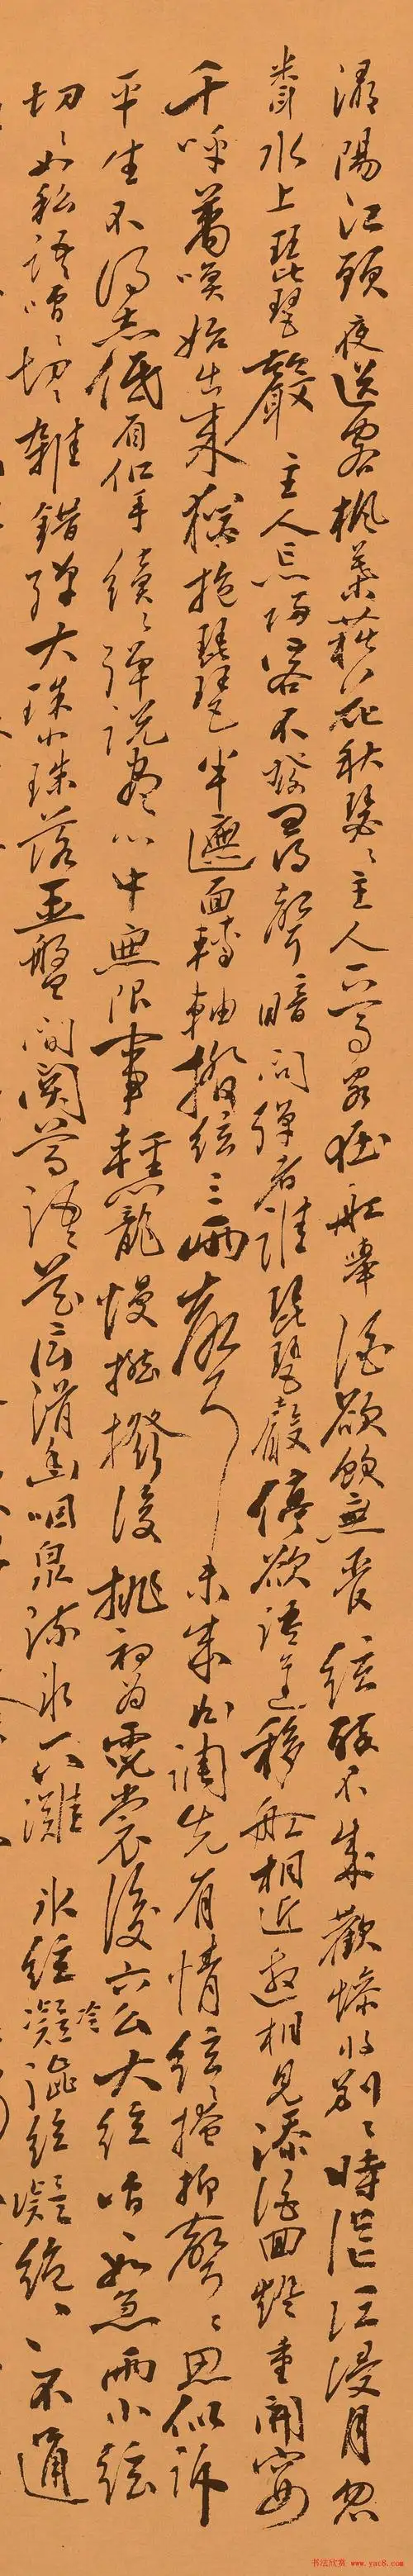 潯陽江頭夜送客楓葉荻花秋瑟〻主人下馬客在船舉酒欲飲無管絃醉不成歡慘將別〻時茫江浸月忽
聞水上琵琶聲主人忘歸客不發尋聲暗問彈者誰琵琶聲停欲語遲移船相近邀相見添酒回燈重開宴
千呼萬喚始出來猶抱琵琶半遮面轉軸撥絃三兩聲未成曲調先有情絃〻掩抑聲〻思似訴
平生不得志低眉信手續〻彈說盡心中無限事輕龍慢撚撥復挑初為霓裳後六么大絃嘈〻如急雨小絃
切〻如私語嘈〻切〻雜錯彈大珠小珠落玉盤間關鶯語花底滑幽咽泉流氷下灘氷絃冷凝澀絃凝絕〻不通
书法欣赏 www.yac8.com